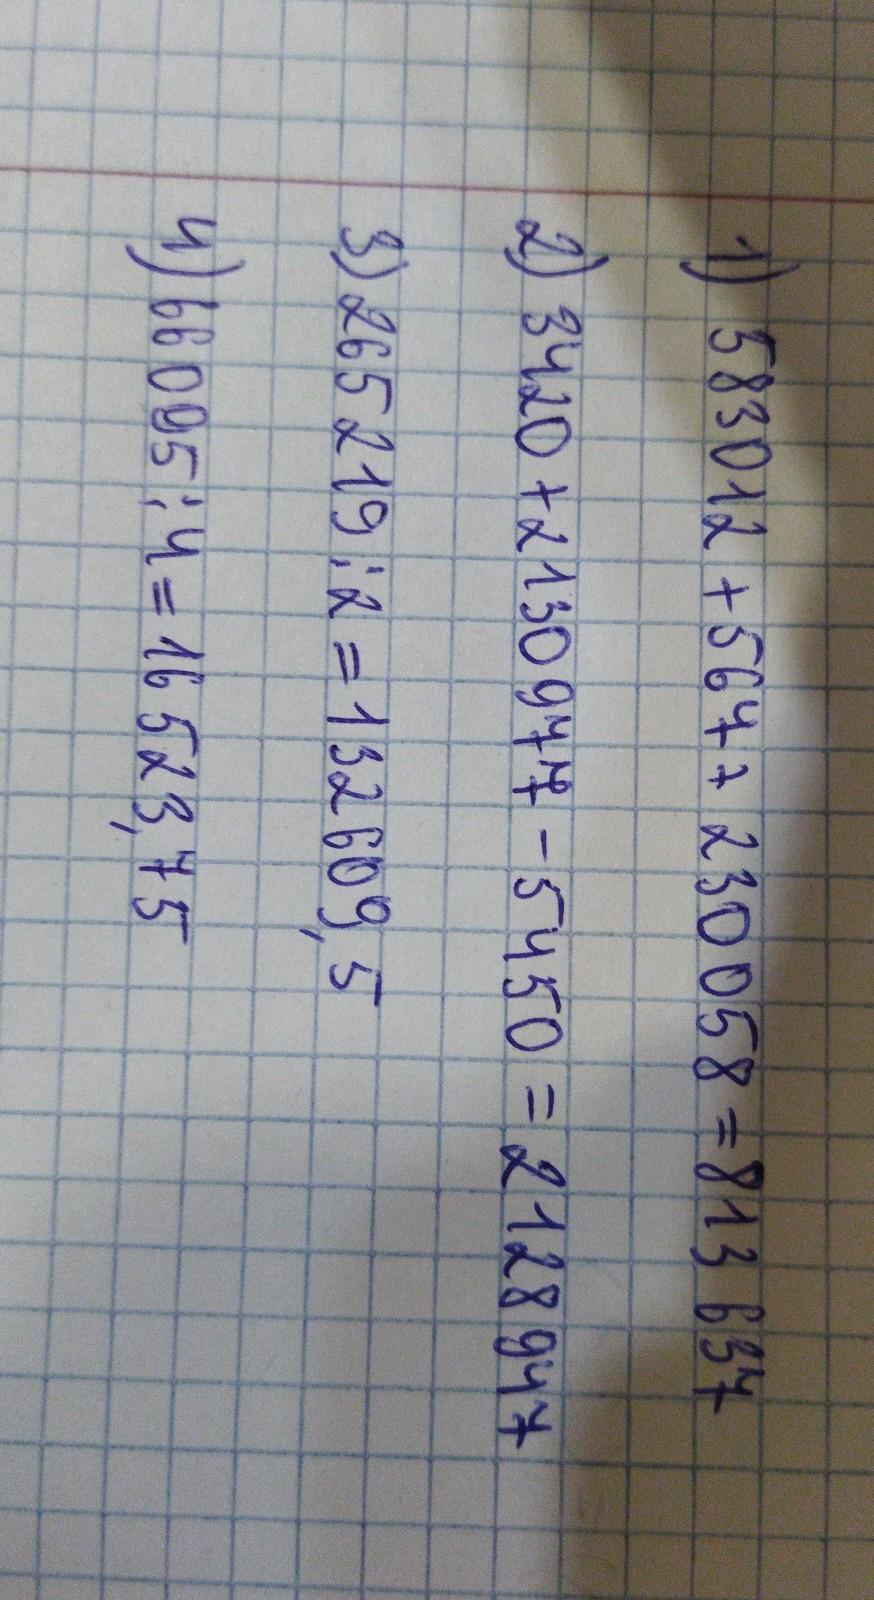 1) 583012 + 567 + 230058 = 813 637
2) 3420 + 2130977 - 5450 = 2128947
3) 265219 : 2 = 132609,5
4) 66095 : 4 = 16523,75